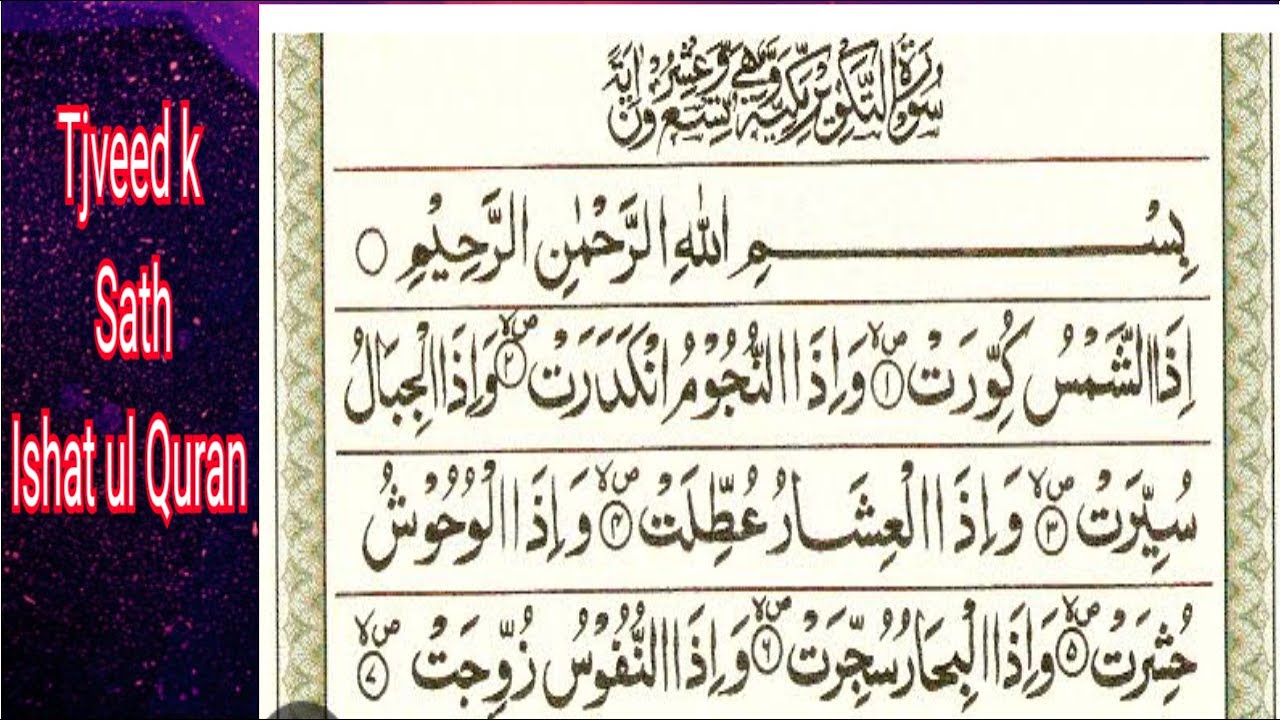 Tjveed k
Sath
Ishat ul Quran
سُوْرَةُ التَّكْوِيْرِ مَكِّيَّةٌ وَّهِيَ تِسْعٌ وَّعِشْرُوْنَ اٰيَةً
بِسْـــــــــــمِ اللهِ الرَّحْمٰنِ الرَّحِيْمِ ○
اِذَا الشَّمْسُ كُوِّرَتْ ۪ۙ﴿۱﴾ وَاِذَا النُّجُوْمُ انْكَدَرَتْ ۪ۙ﴿۲﴾ وَاِذَا الْجِبَالُ
سُيِّرَتْ ۪ۙ﴿۳﴾ وَاِذَا الْعِشَارُ عُطِّلَتْ ۪ۙ﴿۴﴾ وَاِذَا الْوُحُوْشُ
حُشِرَتْ ۪ۙ﴿۵﴾ وَاِذَا الْبِحَارُ سُجِّرَتْ ۪ۙ﴿۶﴾ وَاِذَا النُّفُوْسُ زُوِّجَتْ ۪ۙ﴿۷﴾